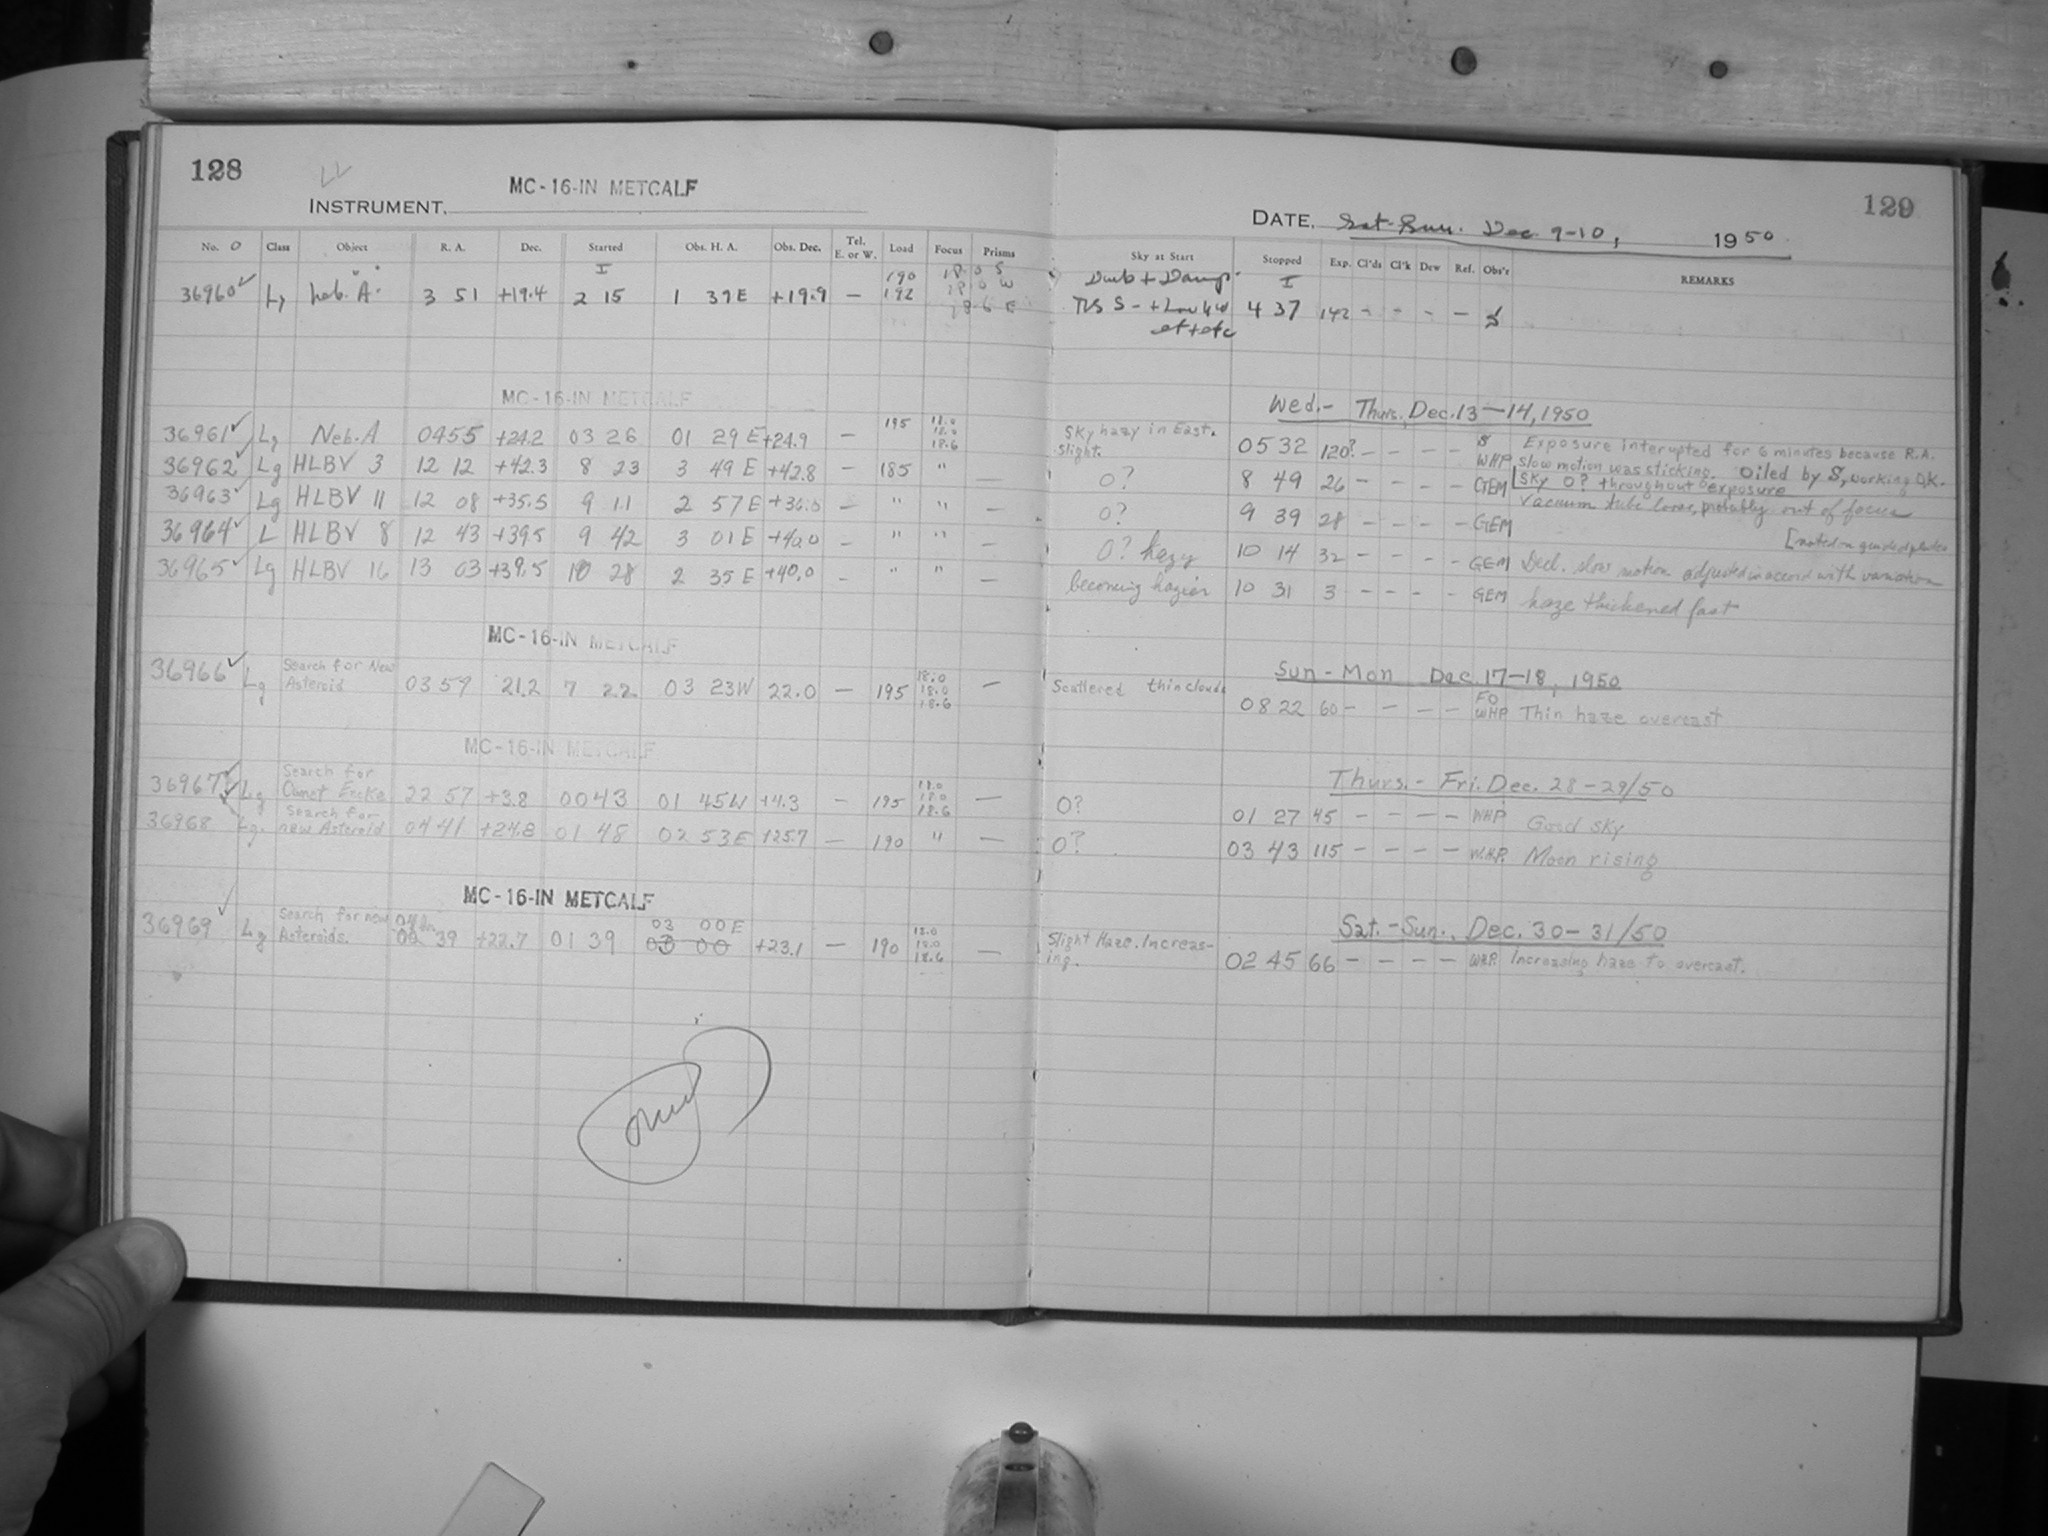 128
INSTRUMENT. MC-16-IN METCALF
No. Class Object R. A. Dec. Started Obs. H. A. Obs. Dec. Tel. E. or W. Load Focus Prisms
36960 Lg 3 51 +19.4 2 15 1 37E +19.9 – 190 192 18.0 S 18.0 W 18.6 E
MC-16-IN METCALF
36961 Lg Neb. A 0455 +24.2 03 26 01 29 E +24.9 – 195 18.0 18.0 18.6
36962 Lg HLBV 3 12 12 +42.3 8 23 3 49 E +42.8 – 185 " –
36963 Lg HLBV 11 12 08 +35.5 9 11 2 57 E +36.0 – " " –
36964 L HLBV 8 12 43 +39.5 9 42 3 01 E +40.0 – " " –
36965 Lg HLBV 16 13 03 +39.5 10 28 2 35 E +40.0 – " " –
MC-16-IN METCALF
36966 Lg Search for New Asteroid 03 59 21.2 7 22 03 23W 22.0 – 195 18.0 18.0 18.6 –
MC-16-IN METCALF
36967 Lg Search for Comet Encke 22 57 +3.8 0043 01 45W +4.3 – 195 18.0 18.0 18.6 –
36968 Lg. Search for new Asteroid 04 41 +24.8 01 48 02 53E +25.7 – 190 " –
MC-16-IN METCALF
36969 Lg Search for new Asteroids. 39 +22.7 01 39 03 00E +23.1 – 190 18.0 18.0 18.6 –
129
DATE. Sat-Sun. Dec 9-10, 1950
Sky at Start Stopped Exp. Cl'ds Cl'k Dew Ref. Obs'r REMARKS
4 37 142 – – – –
Wed.- Thurs. Dec. 13-14, 1950
Sky hazy in East. slight. 05 32 120? – – – – S WHP Exposure interupted for 6 minutes because R.A.
slow motion was sticking. Oiled by S, working O.K.
0? 8 49 26 – – – – GEM [Sky 0? throughout exposure
0? 9 39 28 – – – – GEM Vacuum tube loose, probably out of focus
0? hazy 10 14 32 – – – – GEM Decl. slow motion adjusted in accord with variation
becoming hazier 10 31 3 – – – – GEM haze thickened fast
Sun-Mon Dec. 17-18, 1950
Scattered thin clouds 08 22 60 – – – – FO WHP Thin haze overcast
Thurs.- Fri. Dec. 28-29/50
0? 01 27 45 – – – – WHP Good sky
0? 03 43 115 – – – – W.H.P. Moon rising
Sat.-Sun. Dec. 30-31/50
Slight Haze. Increas-
ing. 02 45 66 – – – – WHP. Increasing haze to overcast.